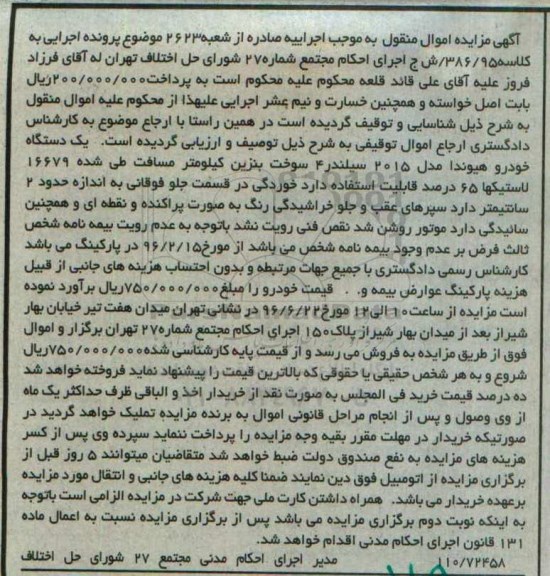 آگهی مزایده اموال منقول به موجب اجراییه صادره از شعبه۲۶۲۳ موضوع پرونده اجرایی به
کلاسه۳۸۶/۹۵/ش ج اجرای احکام مجتمع شماره۲۷ شورای حل اختلاف تهران له آقای فرزاد
فروز علیه آقای علی قائد قلعه محکوم علیه محکوم است به پرداخت۲۰۰/۰۰۰/۰۰۰ریال
بابت اصل خواسته و همچنین خسارت و نیم عشر اجرایی علیهذا از محکوم علیه اموال منقول
به شرح ذیل شناسایی و توقیف گردیده است در همین راستا با ارجاع موضوع به کارشناس
دادگستری ارجاع اموال توقیفی به شرح ذیل توصیف و ارزیابی گردیده است. یک دستگاه
خودرو هیوندا مدل ۲۰۱۵ سیلندر۴ سوخت بنزین کیلومتر مسافت طی شده ۱۶۶۷۹
لاستیکها ۶۵ درصد قابلیت استفاده دارد خوردگی در قسمت جلو فوقانی به اندازه حدود ۲
سانتیمتر دارد سپرهای عقب و جلو خراشیدگی رنگ به صورت پراکنده و نقطه ای و همچنین
سائیدگی دارد موتور روشن شد نقص فنی رویت نشد باتوجه به عدم رویت بیمه نامه شخص
ثالث فرض بر عدم وجود بیمه نامه شخص می باشد از مورخ۹۶/۲/۱۵ در پارکینگ می باشد
کارشناس رسمی دادگستری با جمیع جهات مرتبطه و بدون احتساب هزینه های جانبی از قبیل
هزینه پارکینگ عوارض بیمه و. . قیمت خودرو را مبلغ۷۵۰/۰۰۰/۰۰۰ریال برآورد نموده
است مزایده از ساعت۱۰ الی۱۲ مورخ۹۶/۶/۲۲ در نشانی تهران میدان هفت تیر خیابان بهار
شیراز بعد از میدان بهار شیراز پلاک۱۵۰ اجرای احکام مجتمع شماره۲۷ تهران برگزار و اموال
فوق از طریق مزایده به فروش می رسد و از قیمت پایه کارشناسی شده۷۵۰/۰۰۰/۰۰۰ریال
شروع و به هر شخص حقیقی یا حقوقی که بالاترین قیمت را پیشنهاد نماید فروخته خواهد شد
ده درصد قیمت خرید فی المجلس به صورت نقد از خریدار اخذ و الباقی ظرف حداکثر یک ماه
از وی وصول و پس از انجام مراحل قانونی اموال به برنده مزایده تملیک خواهد گردید در
صورتیکه خریدار در مهلت مقرر بقیه وجه مزایده را پرداخت ننماید سپرده وی پس از کسر
هزینه های مزایده به نفع صندوق دولت ضبط خواهد شد متقاضیان میتوانند ۵ روز قبل از
برگزاری مزایده از اتومبیل فوق دین نمایند ضمنا کلیه هزینه های جانبی و انتقال مورد مزایده
برعهده خریدار می باشد. همراه داشتن کارت ملی جهت شرکت در مزایده الزامی است باتوجه
به اینکه نوبت دوم برگزاری مزایده می باشد پس از برگزاری مزایده نسبت به اعمال ماده
۱۳۱ قانون اجرای احکام مدنی اقدام خواهد شد.
۱۱۰/۷۲۴۵۸ مدیر اجرای احکام مدنی مجتمع ۲۷ شورای حل اختلاف